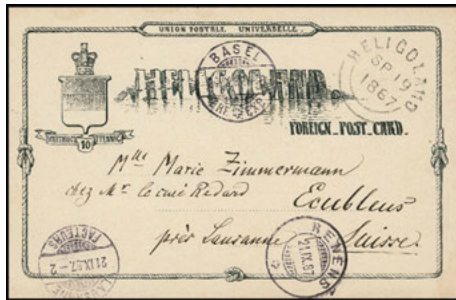 UNION POSTALE UNIVERSELLE.
HELIGOLAND
BASEL
BRF. EXP.
HELIGOLAND
SP 19
1887
FOREIGN POST CARD.
10
Mlle Marie Zimmermann
chez Mr. le curé Redard
Ecublens
près Lausanne
Suisse.
RENENS
21.IX.87
LAUSANNE
21.IX.87.-2
FACTEURS